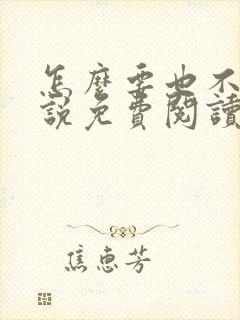 怎麼要也不
說免費閱讀
焦惠芳